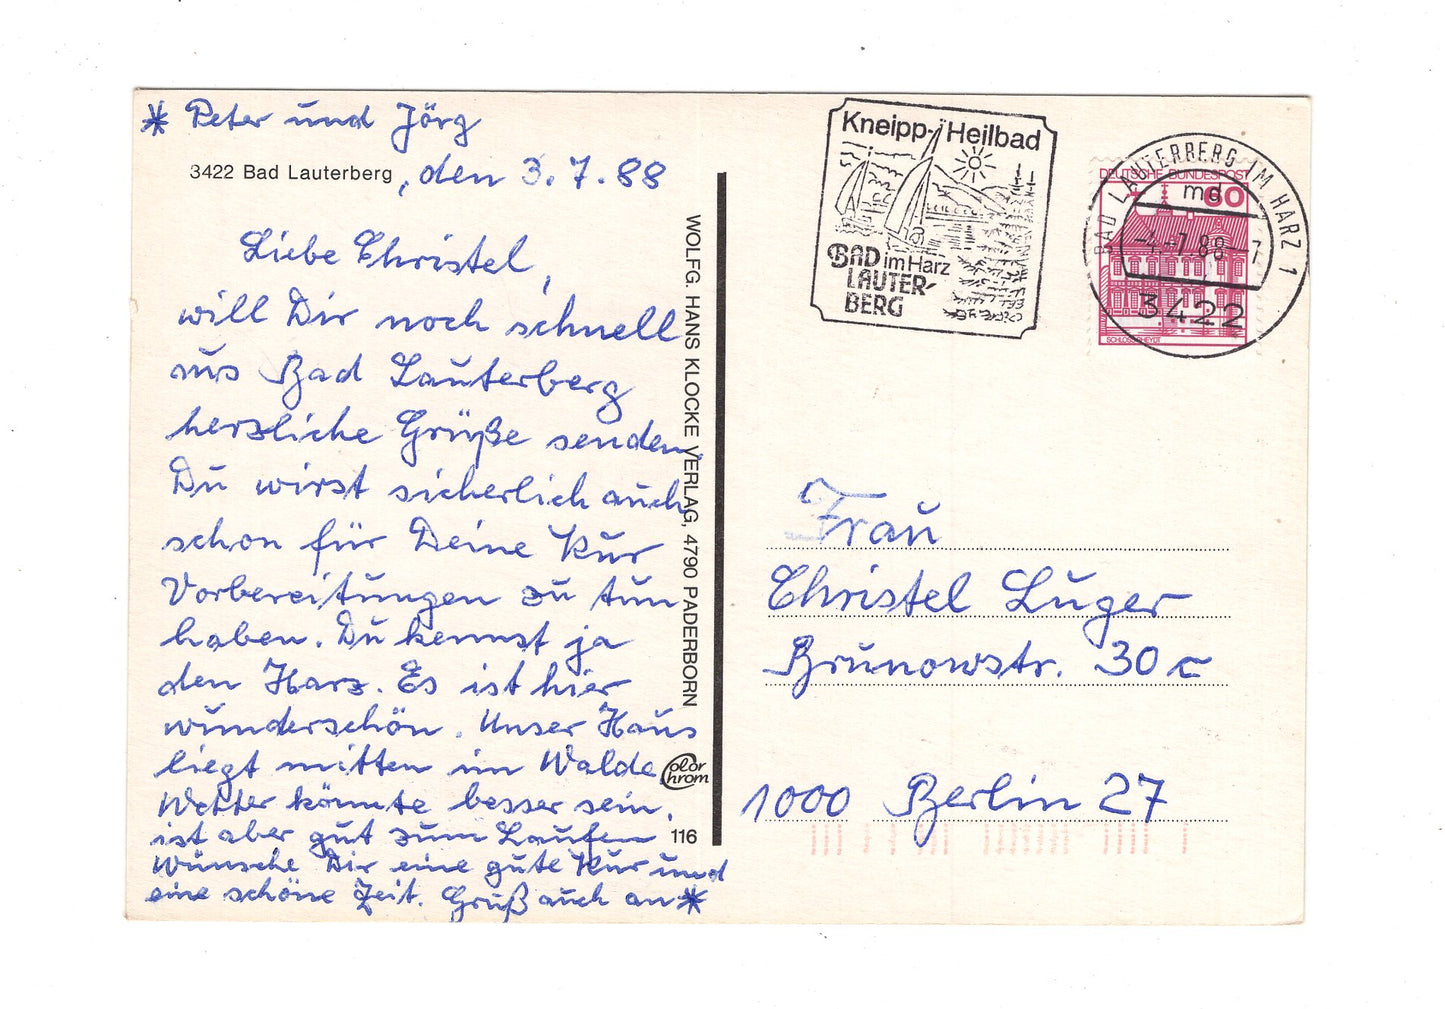 * Peter und Jörg
3422 Bad Lauterberg, den 3.7.88
Liebe Christel,
will Dir noch schnell
aus Bad Lauterberg
herzliche Grüße senden.
Du wirst sicherlich auch
schon für Deine Kur
Vorbereitungen zu tun
haben. Du kennst ja
den Harz. Es ist hier
wunderschön. Unser Haus
liegt mitten im Walde.
Wetter könnte besser sein,
ist aber gut zum Laufen
Wünsche Dir eine gute Kur und
eine schöne Zeit. Gruß auch an *
WOLFG. HANS KLOCKE VERLAG, 4790 PADERBORN
Color Chrom
116
Kneipp-Heilbad
BAD im Harz
LAUTER-
BERG
DEUTSCHE BUNDESPOST
60
SCHLOSS RHEYDT
BAD LAUTERBERG IM HARZ 1
md
-4.-7.88--7
3422
Frau
Christel Luger
Brunowstr. 30 c
1000 Berlin 27